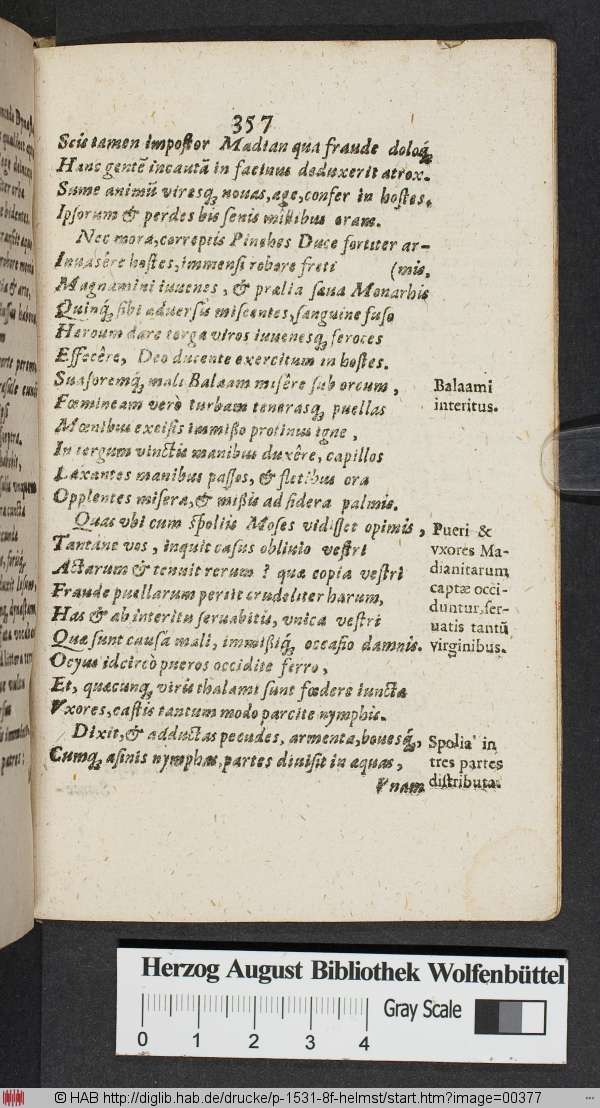 357
Scis tamen impostor Madian qua fraude doloq́;
Hanc gentē incautā in facinus deduxerit atrox.
Sume animū viresq́; nouas, age, confer in hostes,
Ipsorum & perdes bis senis millibus oram.
Nec mora, correptis Pinehes Duce fortiter ar-
Inuasêre hostes, immensi robore freti (mis,
Magnamini iuuenes, & prælia sæua Monarhis
Quinq́; sibi aduersùs miscentes, sanguine fuso
Heroum dare terga viros iuuenesq́; feroces
Effecêre, Deo ducente exercitum in hostes.
Suasoremq́; mali Balaam misêre sub orcum,
Fœmineam verò turbam tenerasq́; puellas
Mœnibus excisis immißo protinus igne,
In tergum vinctis manibus duxêre, capillos
Laxantes manibus passos, & fletibus ora
Opplentes misera, & mißis ad sidera palmis.
Quas vbi cum spoliis Moses vidisset opimis,
Tantáne vos, inquit casus obliuio vestri
Actarum & tenuit rerum? quæ copia vestri
Fraude puellarum periit crudeliter harum,
Has & ab interitu seruabitis, vnica vestri
Quæ sunt causa mali, immißiq́; occasio damnis.
Ocyus idcircò pueros occidite ferro,
Et, quæcunq́; viris thalami sunt fœdere iuncta
Vxores, castis tantum modo parcite nymphis.
Dixit, & adductas pecudes, armenta, bouesq́;,
Cumq́; asinis nymphas, partes diuisit in æquas,
Vnam
Balaami
interitus.
Pueri &
vxores Ma-
dianitarum
captæ occi-
duntur, ser-
uatis tantū
virginibus.
Spolia in
tres partes
distributa.
Herzog August Bibliothek Wolfenbüttel
0 1 2 3 4
Gray Scale
© HAB http://diglib.hab.de/drucke/p-1531-8f-helmst/start.htm?image=00377